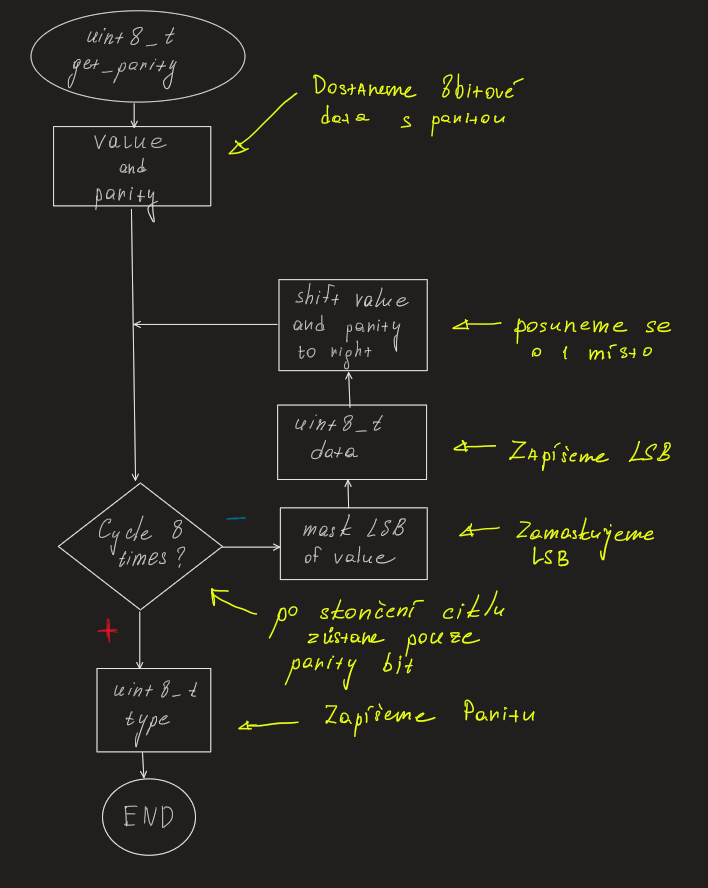 uint8_t
get_parity
Dostaneme 8bitové
data s paritou
value
and
parity
shift value
and parity
to right
posuneme se
o 1 místo
uint8_t
data
Zapíšeme LSB
Cycle 8
times?
−
mask LSB
of value
Zamaskujeme
LSB
po skončení ciklu
zůstane pouze
parity bit
+
uint8_t
type
Zapíšeme Paritu
END